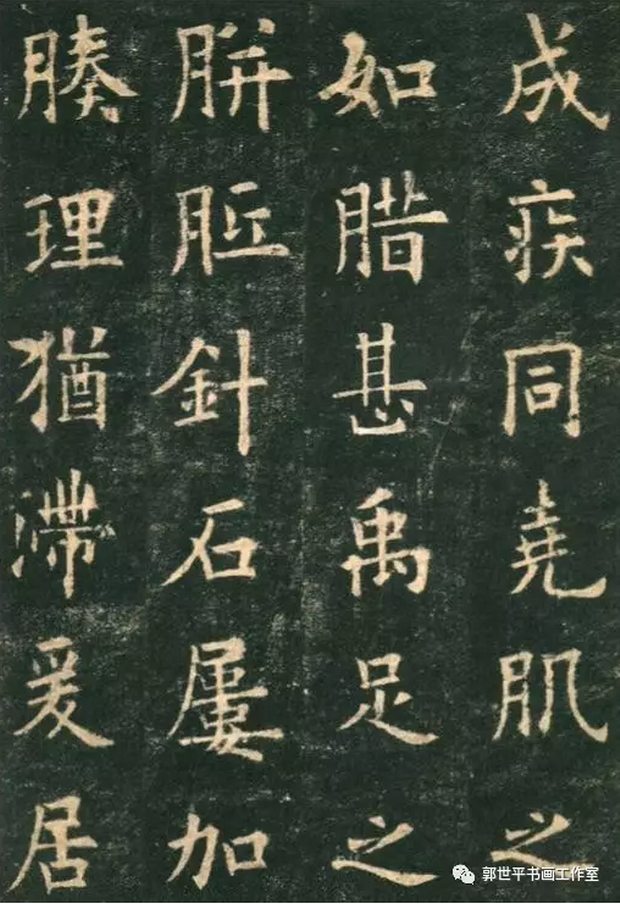 成疾同堯肌之
如腊甚禹足之
胼胝針石屢加
腠理猶滯爰居
郭世平书画工作室